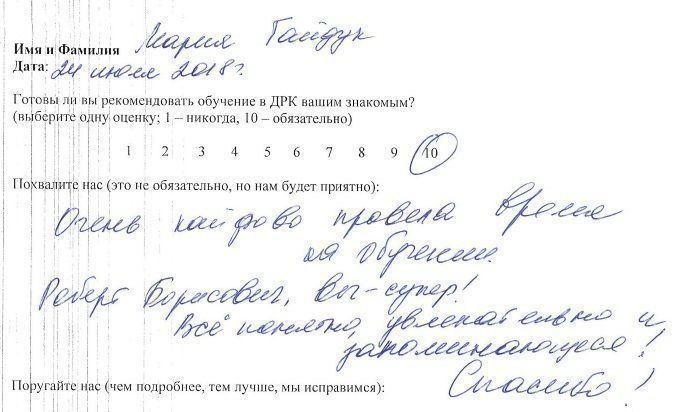 Имя и Фамилия Мария Гайдук
Дата: 24 июля 2018г.
Готовы ли вы рекомендовать обучение в ДРК вашим знакомым?
(выберите одну оценку; 1 – никогда, 10 – обязательно)
1 2 3 4 5 6 7 8 9 10
Похвалите нас (это не обязательно, но нам будет приятно):
Очень кайфово провела время
на обучении.
Роберт Борисович, Вы – супер!
Всё понятно, увлекательно и
запоминающееся!
Поругайте нас (чем подробнее, тем лучше, мы исправимся):
Спасибо!